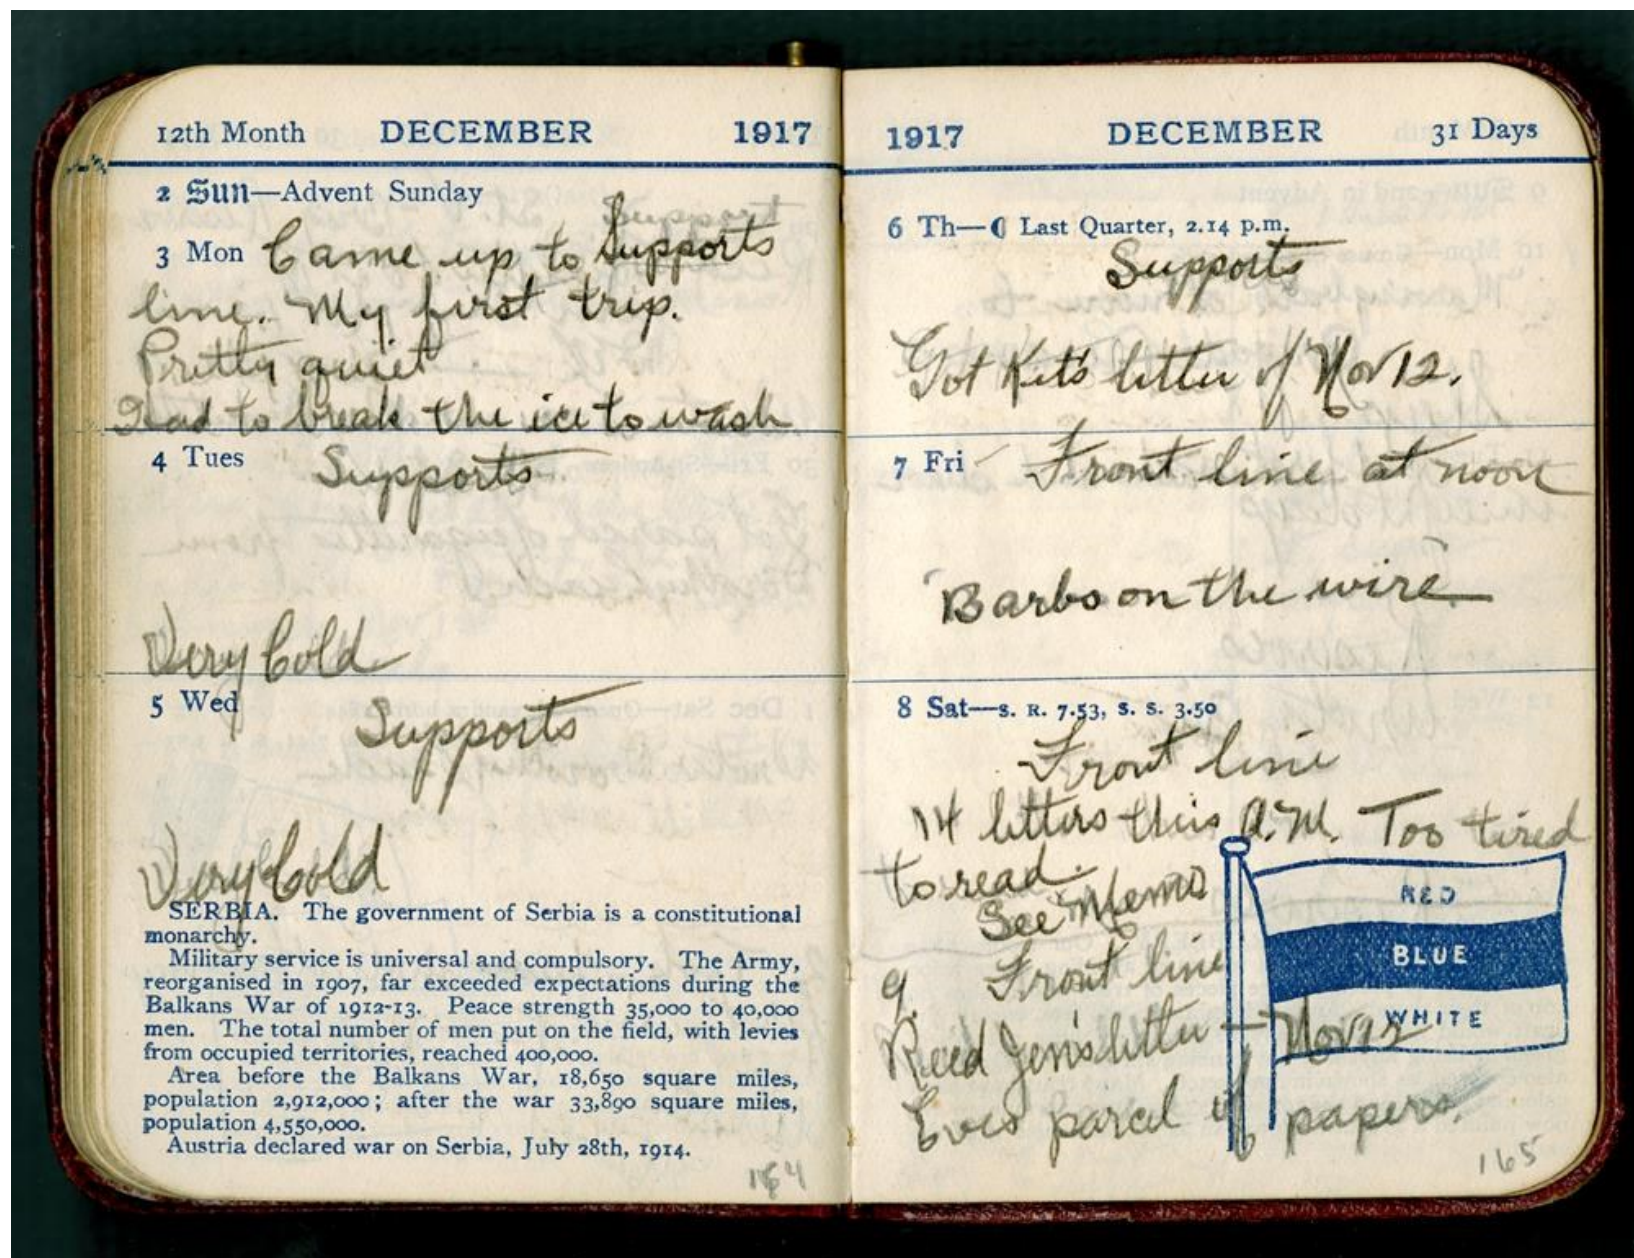 12th Month DECEMBER 1917
2 Sun—Advent Sunday
3 Mon Came up to supports
line. My first trip.
Pretty quiet
Had to break the ice to wash
4 Tues Supports
Very Cold
5 Wed Supports
Very Cold
SERBIA. The government of Serbia is a constitutional
monarchy.
Military service is universal and compulsory. The Army,
reorganised in 1907, far exceeded expectations during the
Balkans War of 1912-13. Peace strength 35,000 to 40,000
men. The total number of men put on the field, with levies
from occupied territories, reached 400,000.
Area before the Balkans War, 18,650 square miles,
population 2,912,000; after the war 33,890 square miles,
population 4,550,000.
Austria declared war on Serbia, July 28th, 1914.
164
1917 DECEMBER 31 Days
6 Th—☾ Last Quarter, 2.14 p.m.
Supports
Got Kit's letter of Nov 12.
7 Fri Front line at noon
"Barbs on the wire"
8 Sat—S. R. 7.53, S. S. 3.50
Front line
14 letters this A.M. Too tired
to read.
See Memo
RED
BLUE
WHITE
9. Front line
Recd Jen's letter — Nov 12
Eves parcel of papers.
165